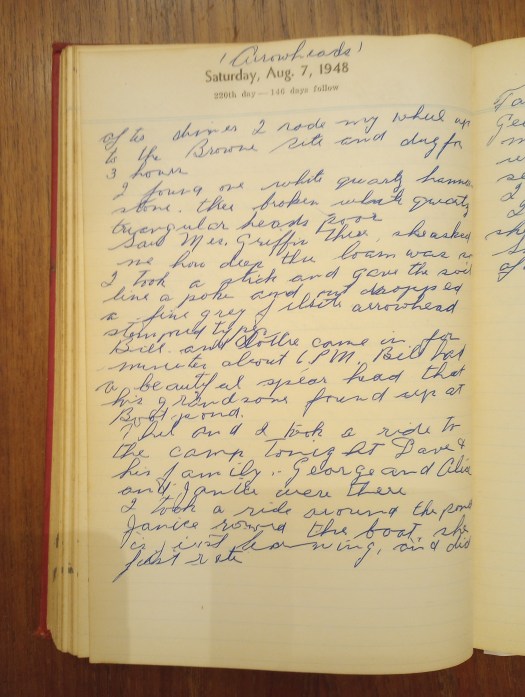 'Arrowheads'
Saturday, Aug. 7, 1948
220th day—146 days follow
after dinner I rode my wheel up
to the Browne site and dug for
3 hours
I found one white quartz hammer
stone. three broken white quartz
triangular heads poor
Saw Mrs. Griffin there, she asked
me how deep the loam was so
I took a stick and gave the soil
line a poke and out dropped
a fine grey felsite arrowhead
stemmed type
Bill and Lottie came in for
minutes about 6 PM, Bill had
a beautiful spear head that
his grandsons found up at
pond.
and I took a ride to
the camp tonight Dave &
his family. George and
and Janice were there
I took a ride around the pond
Janice rowed the boat, she
is just learning, and did
first rate